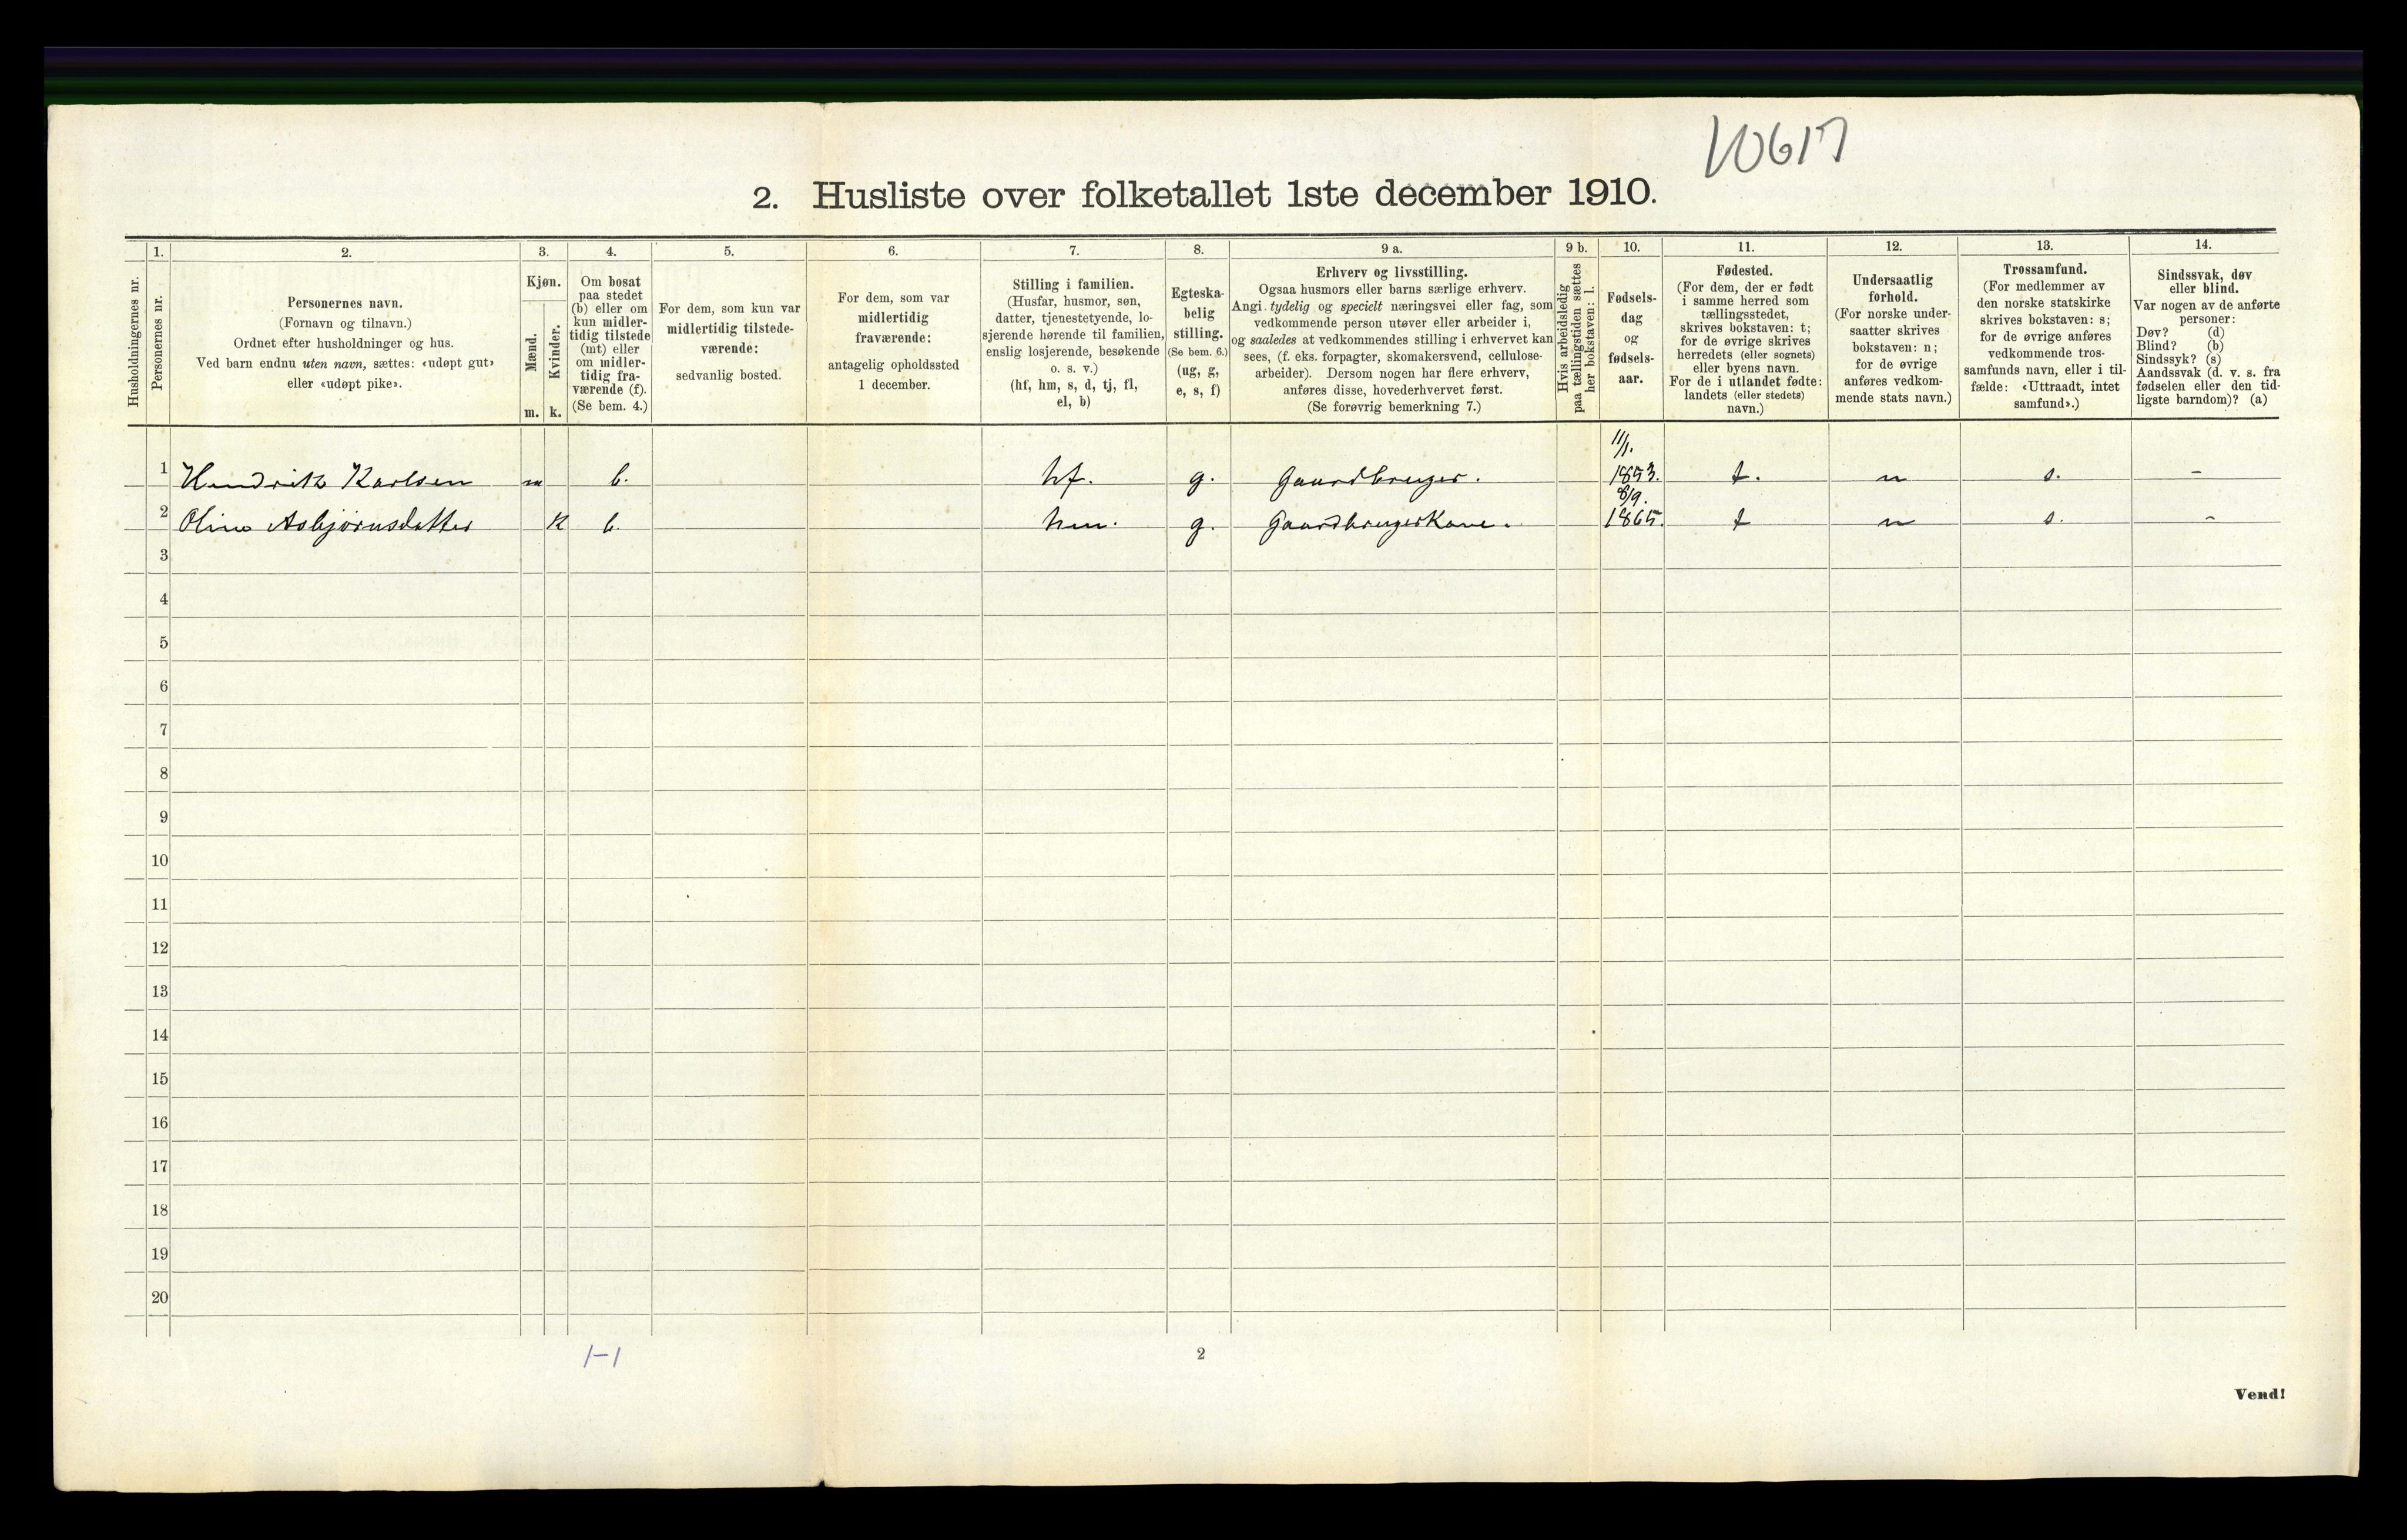 10617
2. Husliste over folketallet 1ste december 1910.
Husholdningernes nr.
1.
Personernes nr.
2.
Personernes navn.
(Fornavn og tilnavn.)
Ordnet efter husholdninger og hus.
Ved barn endnu uten navn, sættes: «udøpt gut»
eller «udøpt pike».
3.
Kjøn.
Mænd.
Kvinder.
m. k.
4.
Om bosat
paa stedet
(b) eller om
kun midler-
tidig tilstede
(mt) eller
om midler-
tidig fra-
værende (f).
(Se bem. 4.)
5.
For dem, som kun var
midlertidig tilstede-
værende:
sedvanlig bosted.
6.
For dem, som var
midlertidig
fraværende:
antagelig opholdssted
1 december.
7.
Stilling i familien.
(Husfar, husmor, søn,
datter, tjenestetyende, lo-
sjerende hørende til familien,
enslig losjerende, besøkende
o. s. v.)
(hf, hm, s, d, tj, fl,
el, b)
8.
Egteska-
belig
stilling.
(Se bem. 6.)
(ug, g,
e, s, f)
9 a.
Erhverv og livsstilling.
Ogsaa husmors eller barns særlige erhverv.
Angi tydelig og specielt næringsvei eller fag, som
vedkommende person utøver eller arbeider i,
og saaledes at vedkommendes stilling i erhvervet kan
sees, (f. eks. forpagter, skomakersvend, cellulose-
arbeider). Dersom nogen har flere erhverv,
anføres disse, hovederhvervet først.
(Se forøvrig bemerkning 7.)
9 b.
Hvis arbeidsledig
paa tællingstiden sættes
her bokstaven: l.
10.
Fødsels-
dag
og
fødsels-
aar.
11.
Fødested.
(For dem, der er født
i samme herred som
tællingsstedet,
skrives bokstaven: t;
for de øvrige skrives
herredets (eller sognets)
eller byens navn.
For de i utlandet fødte:
landets (eller stedets)
navn.)
12.
Undersaatlig
forhold.
(For norske under-
saatter skrives
bokstaven: n;
for de øvrige
anføres vedkom-
mende stats navn.)
13.
Trossamfund.
(For medlemmer av
den norske statskirke
skrives bokstaven: s;
for de øvrige anføres
vedkommende tros-
samfunds navn, eller i til-
fælde: «Uttraadt, intet
samfund».)
14.
Sindssvak, døv
eller blind.
Var nogen av de anførte
personer:
Døv? (d)
Blind? (b)
Sindssyk? (s)
Aandssvak (d. v. s. fra
fødselen eller den tid-
ligste barndom)? (a)
11/1.
1 Hendrik Karlsen m b. hf. g. Gaardbruger. 1853. t. n s. -
8/9.
2 Oline Asbjørnsdatter k b. hm. g. Gaardbrugerkone. 1865. t n s. -
3
4
5
6
7
8
9
10
11
12
13
14
15
16
17
18
19
20
1-1
2
Vend!